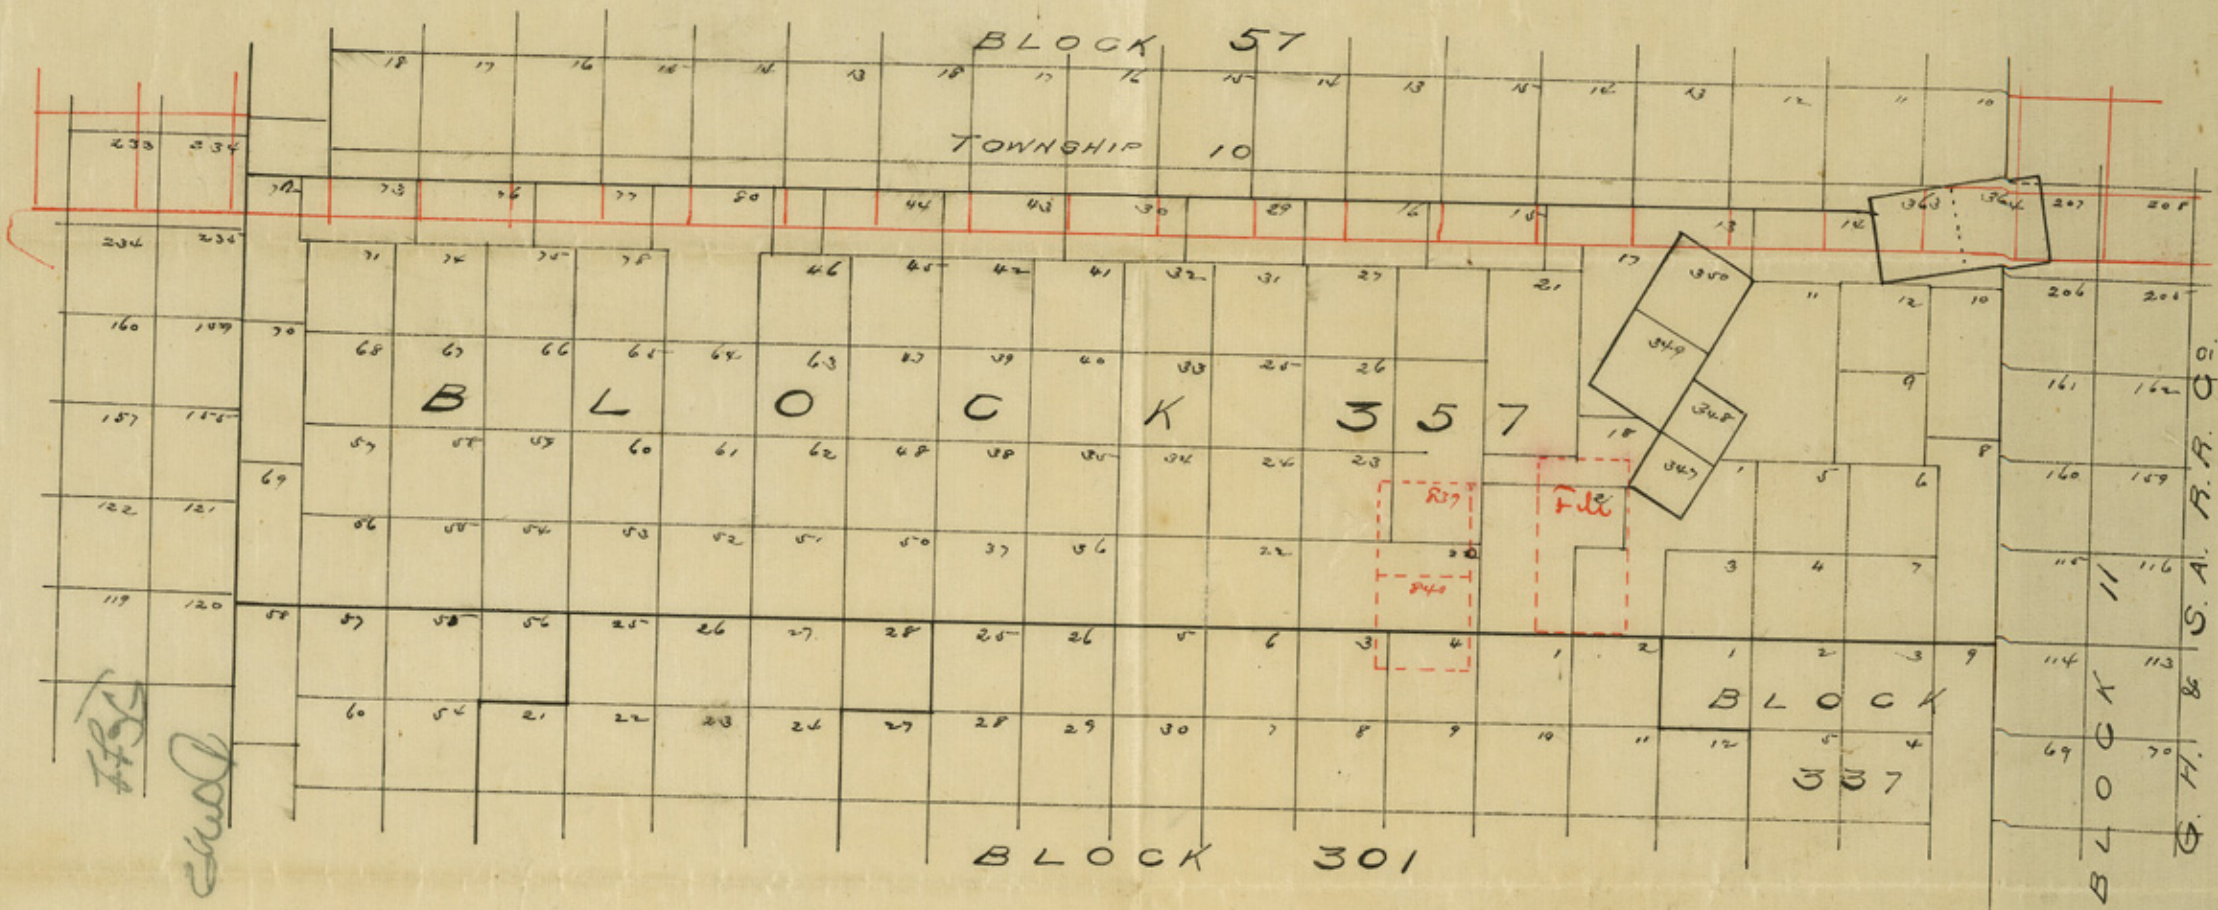 BLOCK 57
18 17 16 15 14 13 18 17 16 15 14 13 15 14 13 12 11 10
TOWNSHIP 10
233 234
72 73 76 77 80 44 43 30 29 16 15 13 14 363 364 207 208
234 235
71 74 75 78 46 45 42 41 32 31 27 21 17 350 11 12 10 206 205
160 159 70
68 67 66 65 64 63 47 39 40 33 25 26 349 9 161 162
BLOCK 357
157 155
57 58 59 60 61 62 48 38 35 34 24 23 18 348 8
69
347 1 5 6 160 159
839
Fill
2
122 121
56 55 54 53 52 51 50 37 36 22 20 3 4 7 115 116
840
119 120
58 57 55 56 25 26 27 28 25 26 5 6 3 4 1 2 1 2 3 9 114 113
BLOCK
337
60 54 21 22 23 24 27 28 29 30 7 8 9 10 11 12 5 4 69 70
BLOCK 301
BLOCK 11
G. H. & S. A. R. R. Co.